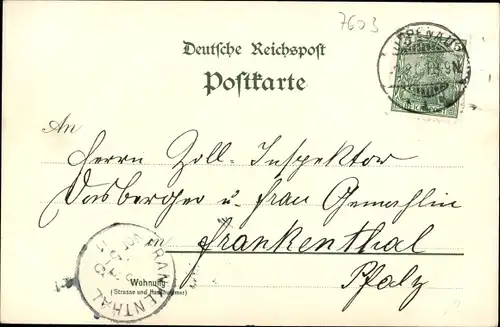 7603
Deutsche Reichspost
Postkarte
OPPENAU
An
Herrn Zoll-Inspektor
Dosberger u. Frau Gemahlin
in Frankenthal
Pfalz
Wohnung
(Strasse und Hausnummer)
FRANKENTHAL